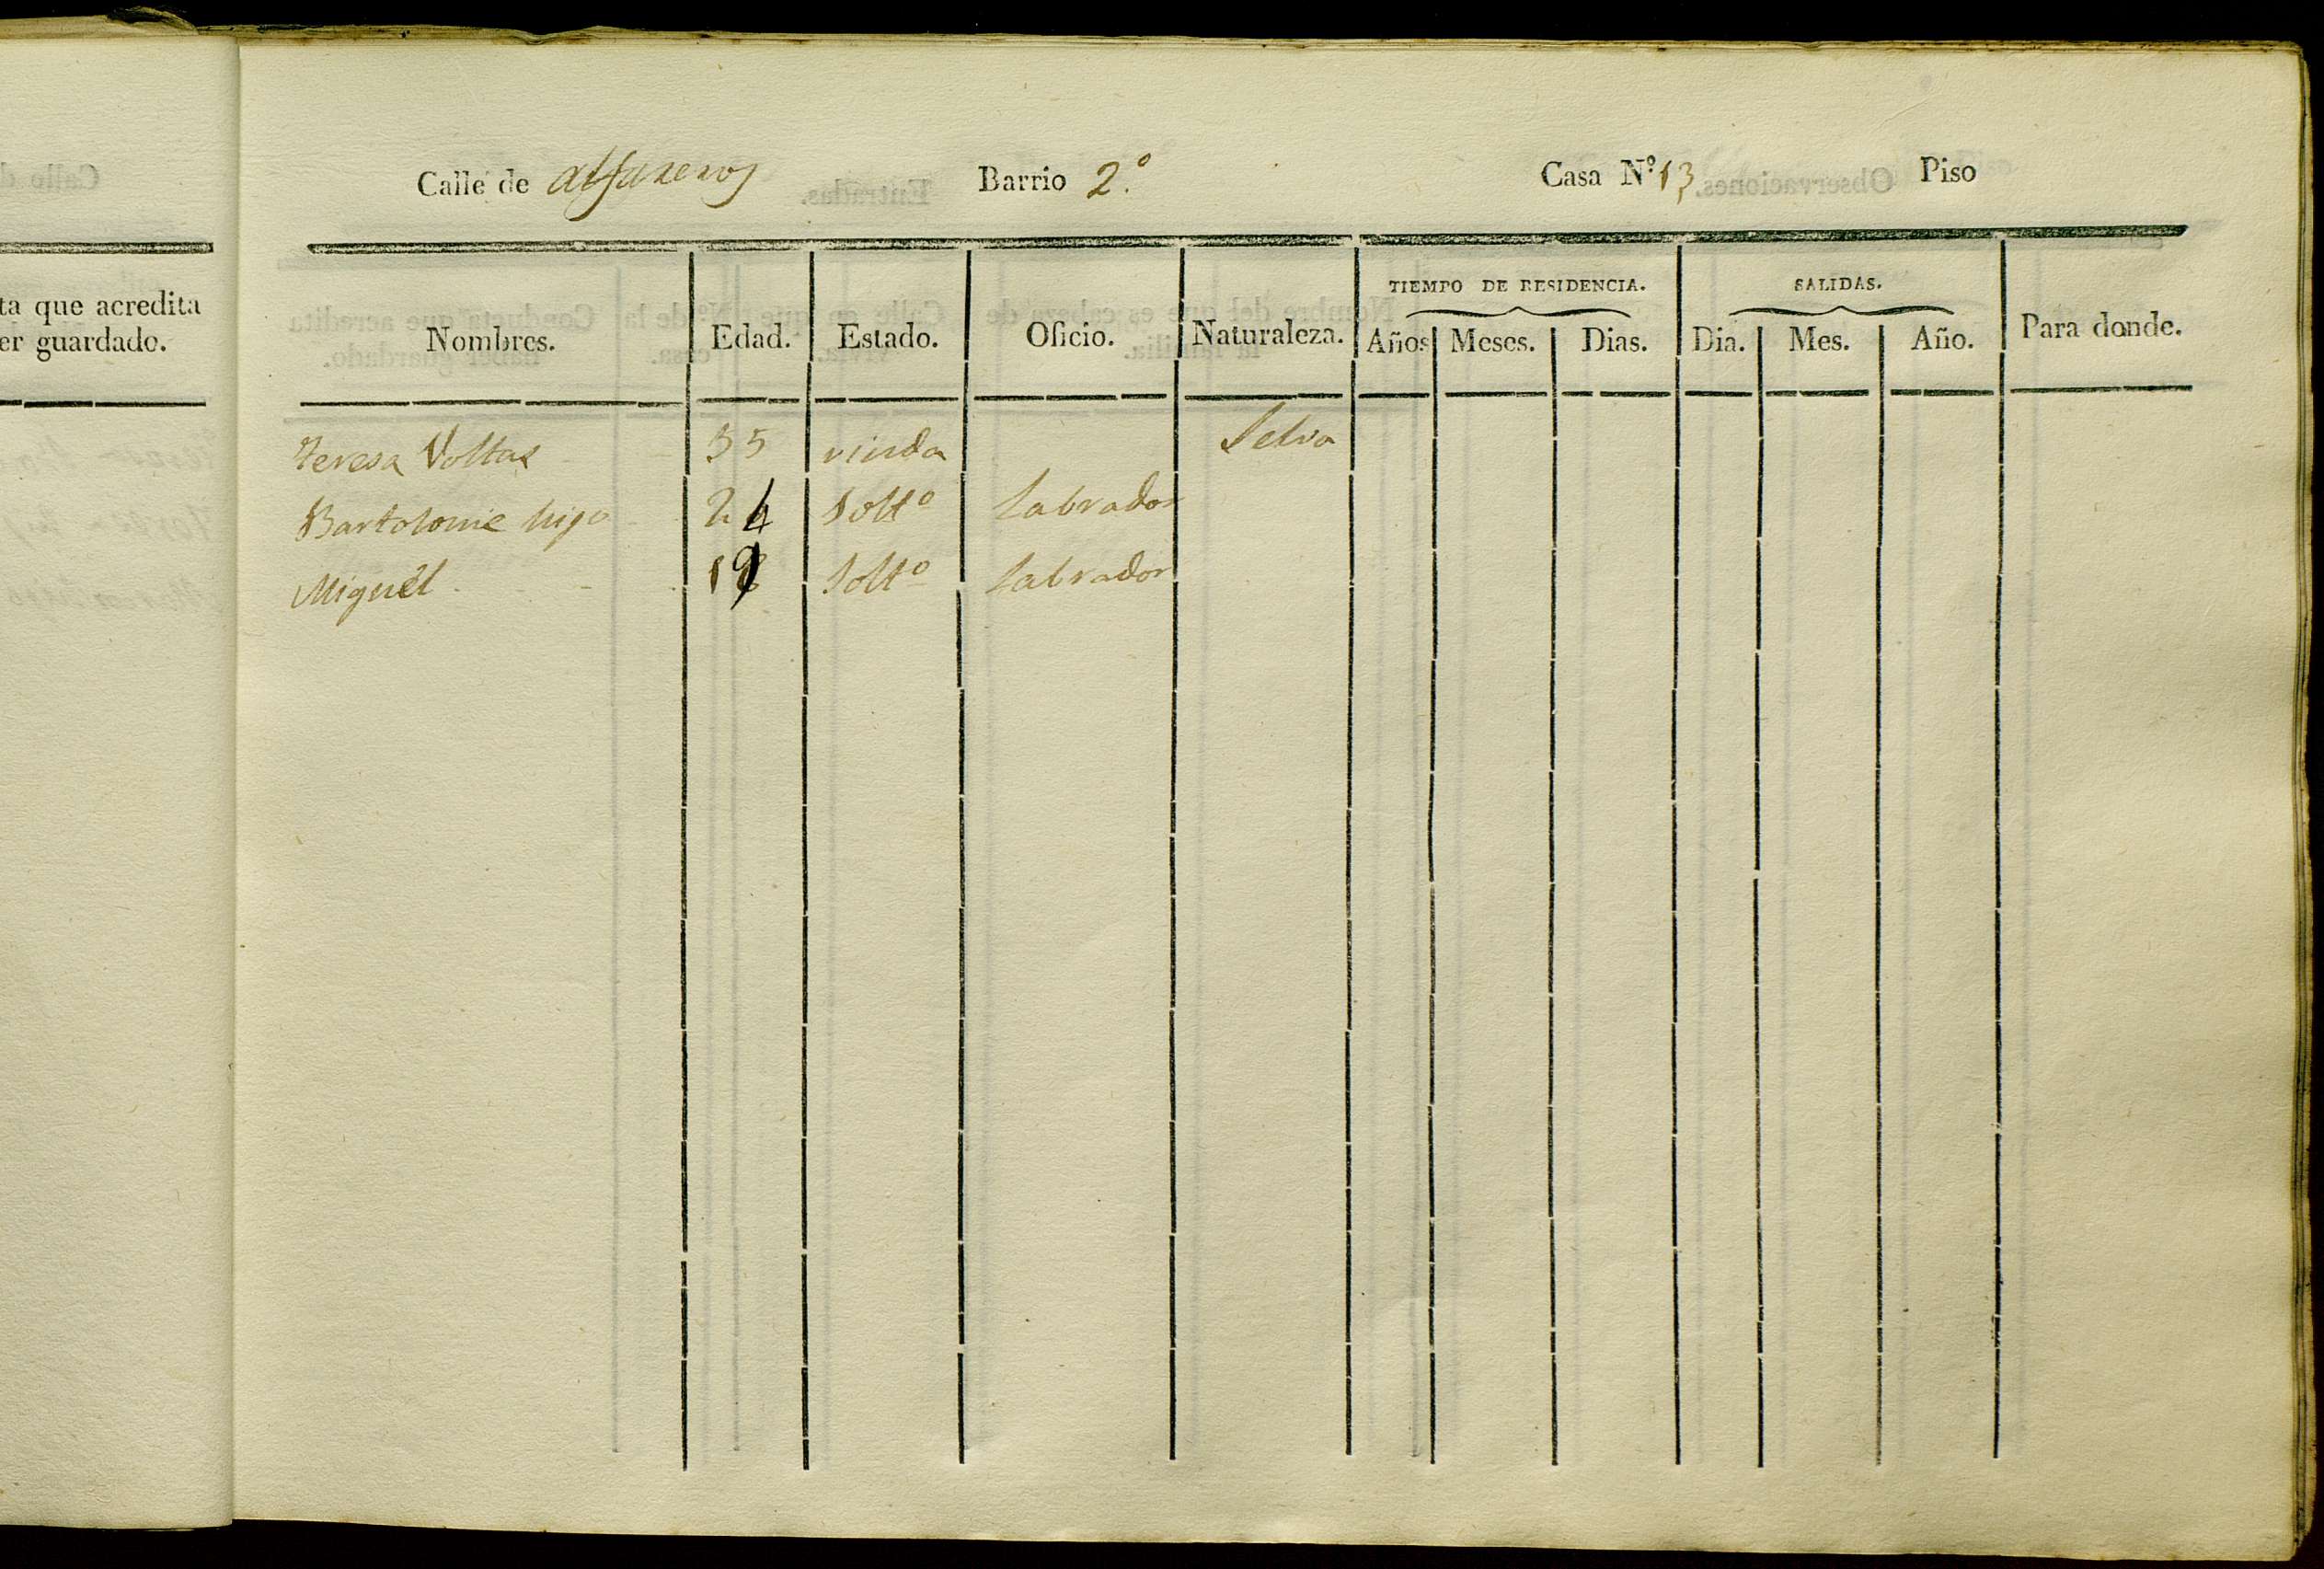 ta que acredita
er guardado.
Calle de alfareros Barrio 2.º Casa Nº 13 Piso
TIEMPO DE RESIDENCIA. SALIDAS.
Nombres. Edad. Estado. Oficio. Naturaleza. Años Meses. Dias. Dia. Mes. Año. Para donde.
Teresa Voltas 55 viuda Selva
Bartolome hijo 24 Soltº labrador
Miguel 19 Soltº labrador